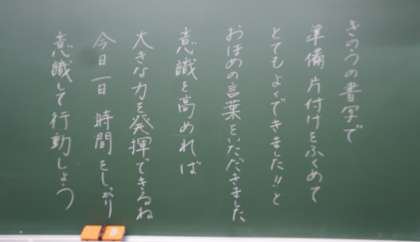 きのうの書写で
準備片付けをふくめて
とてもよくできました!!と
おほめの言葉をいただきました
意識を高めれば
大きな力を発揮できるね
今日一日時間をしっかり
意識して行動しよう